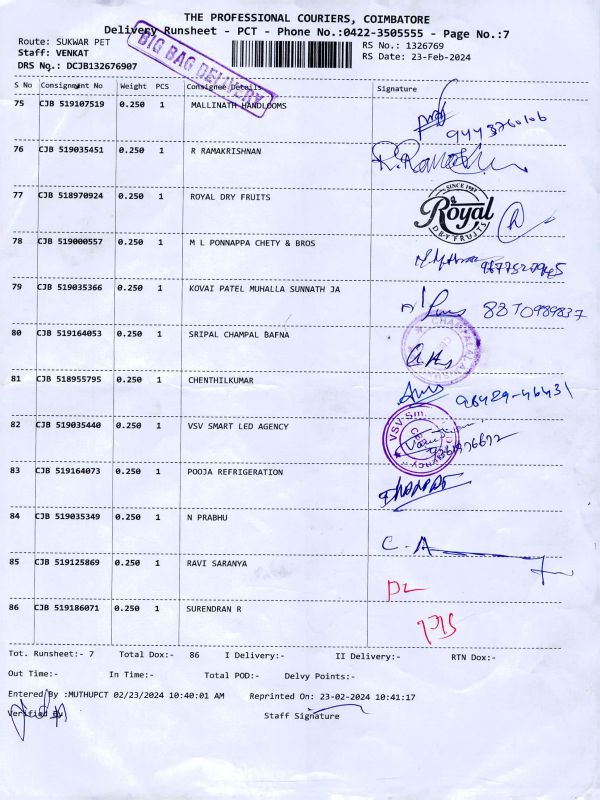 THE PROFESSIONAL COURIERS, COIMBATORE
Delivery Runsheet - PCT - Phone No.:0422-3505555 - Page No.:7
Route: SUKWAR PET
RS No.: 1326769
Staff: VENKAT
RS Date: 23-Feb-2024
DRS No.: DCJB132676907
BIG BAG DELIVERY
S No Consignment No Weight PCS Consignee Details Signature
75 CJB 519107519 0.250 1 MALLINATH HANDLOOMS
9443760106
76 CJB 519035451 0.250 1 R RAMAKRISHNAN
77 CJB 518970924 0.250 1 ROYAL DRY FRUITS
SINCE 1987
Royal
DRY FRUITS
78 CJB 519000557 0.250 1 M L PONNAPPA CHETY & BROS
79 CJB 519035366 0.250 1 KOVAI PATEL MUHALLA SUNNATH JA
8870989837
80 CJB 519164053 0.250 1 SRIPAL CHAMPAL BAFNA
81 CJB 518955795 0.250 1 CHENTHILKUMAR
98429-46431
82 CJB 519035440 0.250 1 VSV SMART LED AGENCY
83 CJB 519164073 0.250 1 POOJA REFRIGERATION
84 CJB 519035349 0.250 1 N PRABHU
C. A
85 CJB 519125869 0.250 1 RAVI SARANYA
DL
86 CJB 519186071 0.250 1 SURENDRAN R
Tot. Runsheet:- 7 Total Dox:- 86 I Delivery:- II Delivery:- RTN Dox:-
Out Time:- In Time:- Total POD:- Delvy Points:-
Entered By :MUTHUPCT 02/23/2024 10:40:01 AM Reprinted On: 23-02-2024 10:41:17
Verified By Staff Signature